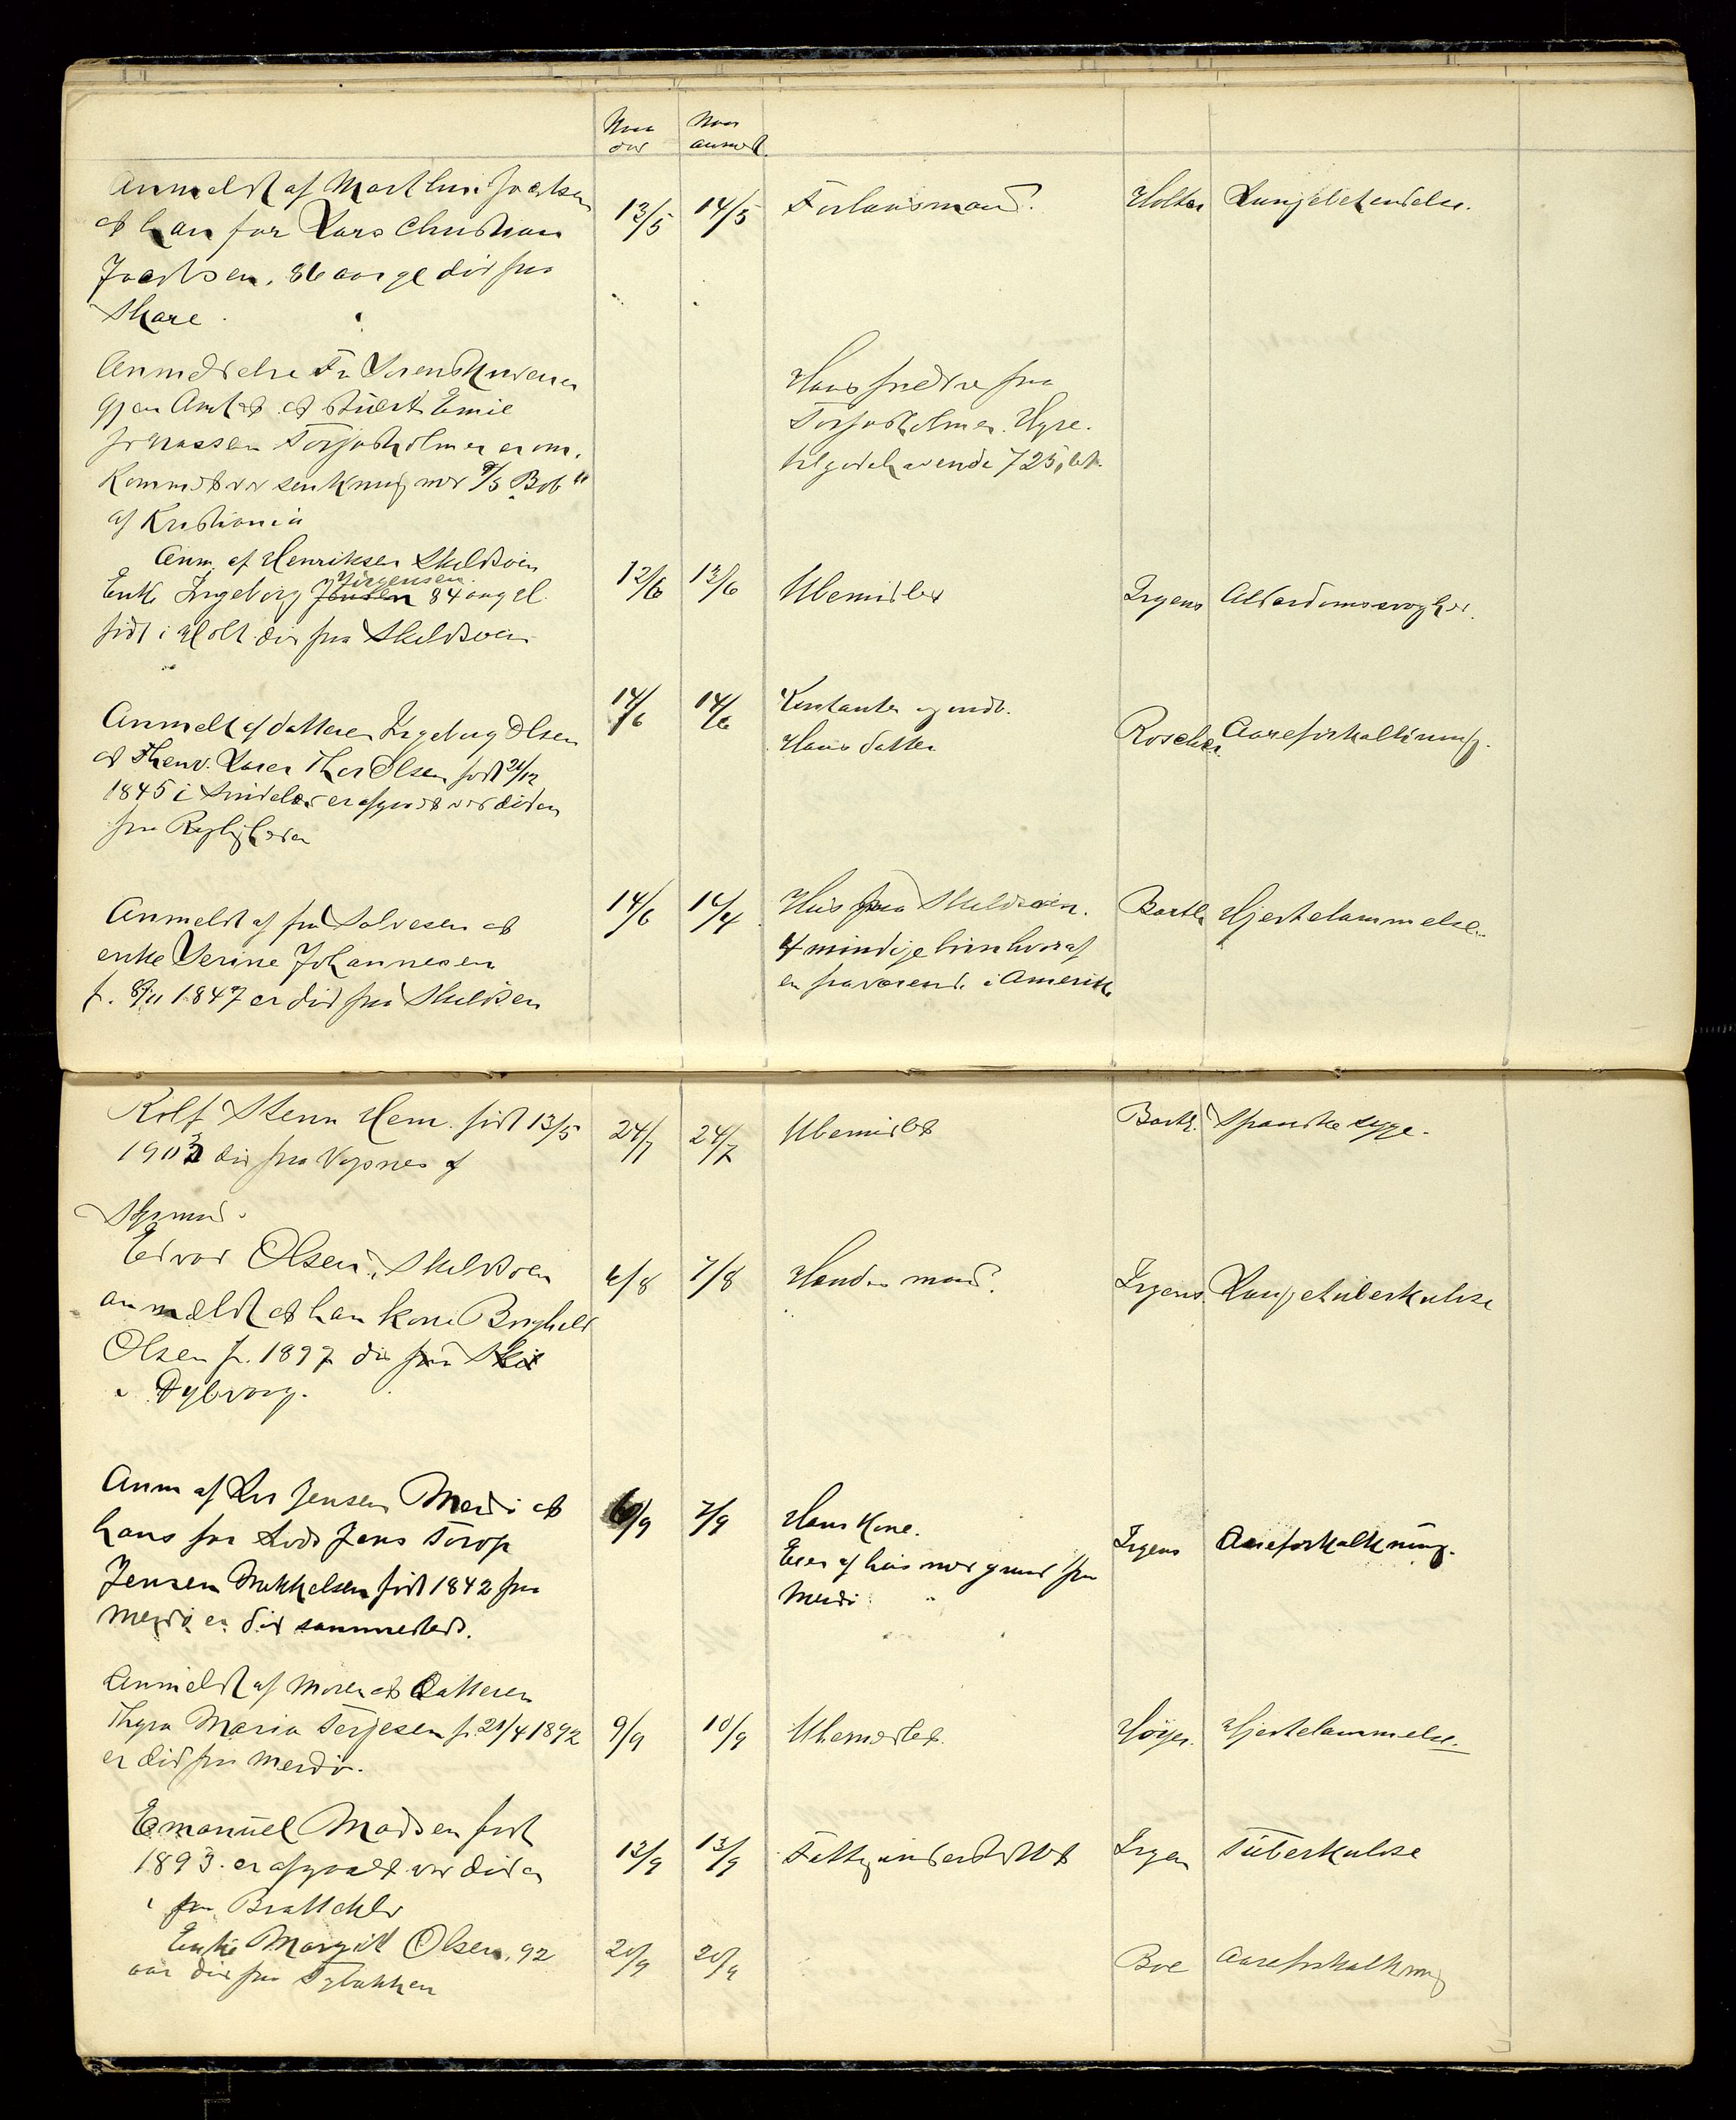 Naar Naar
død anmeldt.
Anmeldt af Mathias Jacobsen
at han far Lars Christian
Jacobsen, 86 aar gl død fra
Skare.
13/5 14/5 Forlovsmand. Holter Lungebetendelse.
Anmeldelse Fra Sorenskriveren
Gjen Amtet at stuert Emil
Johnassen Torjusholmen er om-
kommet ved senkning med 9/5 "Bob"
af Kristiania
Hans forældre fra
Torjusholmen. Hyre-
tilgodehavende 725,
Anm. af Henriksen Skilsøen
Enke Ingeborg Jensen Jörgensen 84 aar gl.
født i Holt død fra Skilsøen
12/6 13/6 Ubemidlet Irgens Alderdomssvaghed.
Anmeldt af datteren Ingeborg Olsen
at Fhenv. Thor Olsen født 21/12
1845 i er afgaaet ved døden
fra
14/6 14/6 Kontanter og indb.
Hans datter
Roscher. Aareforkalkning.
Anmeldt af fru Salvesen at
enke Serine Johannesen
f. 8/11 1847 er død fra Skilsøen
14/6 16/4 Hus fra Skilsøen.
4 mindige børn hvoraf
en fraværende i Amerika
Barth Hjertelammelse.
Rolf Stenn Hem. født 13/5
1903 død fra Vypnes af
24/7 24/7 Ubemidlet Barth. Spanske syge.
Styrmand.
Edvard Olsen, Skilsøen
anmeldt at han kone Borghild
Olsen f. 1897 død fra Skil
i Dybvaag.
6/8 7/8 Hendes mand. Irgens. Lungetuberkulose
Anm af Lars Jensen Merdø at
hans far Lods Jens Torop
Jensen Mikkelsen født 1842 fra
Merdø er død sammesteds.
6/9 7/9 Hans Kone.
Eier af hus med grund fra
Merdø
Irgens Aareforkalkning.
Anmeldt af moren at Datteren
Thyra Maria Terjesen f. 21/4 1892
er død fra Merdø.
9/9 10/9 Ubemidlet. Høyer. Hjertelammelse.
Emanuel Madsen født
1893. er afgaaet ved døden
i fra Brattekler
13/9 13/9 Fattigunderstøttet Irgen Tuberkulose
Enke Margit Olsen, 92
aar død fra Tybakken
20/9 20/9 Boe Aareforkalkning